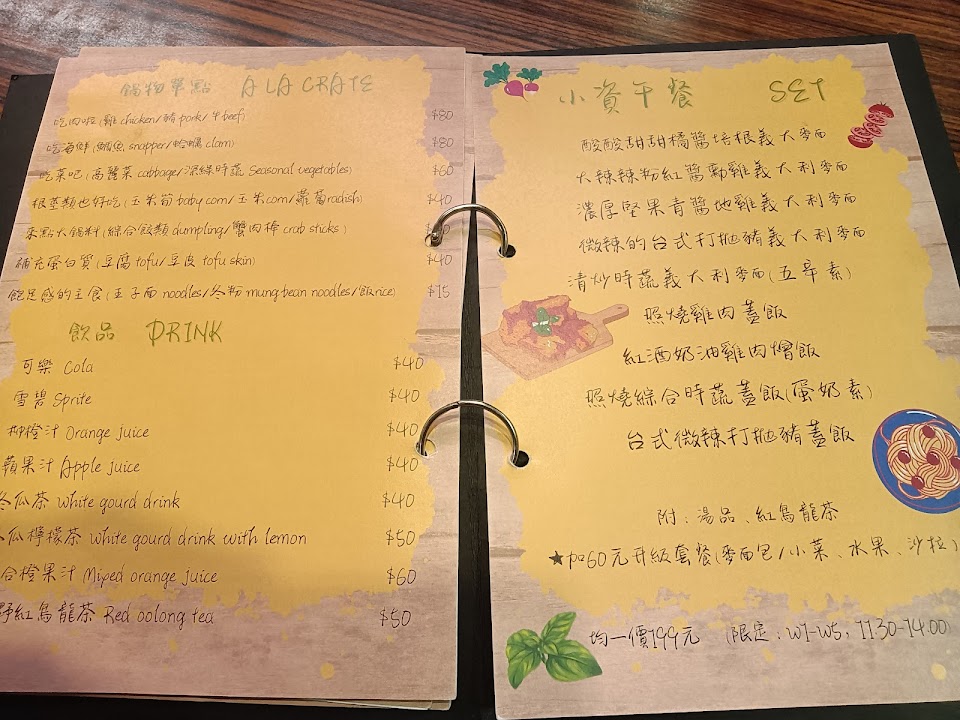 鍋物單點 A LA CRATE
吃肉啦(雞 chicken/豬 pork/牛 beef) $80
吃海鮮(鯛魚 snapper/蛤蠣 clam) $80
吃菜吧(高麗菜 cabbage/深綠時蔬 Seasonal vegetables) $60
根莖類也好吃(玉米筍 baby corn/玉米 corn/蘿蔔 radish) $40
來點火鍋料(綜合餃類 dumpling/蟹肉棒 crab sticks)
補充蛋白質(豆腐 tofu/豆皮 tofu skin) $40
飽足感的主食(王子麵 noodles/冬粉 mung bean noodles/飯 rice) $15
飲品 DRINK
可樂 Cola $40
雪碧 Sprite $40
柳橙汁 Orange juice $40
蘋果汁 Apple juice $40
冬瓜茶 White gourd drink $40
瓜檸檬茶 White gourd drink with lemon $50
合橙果汁 Miped orange juice $60
紅烏龍茶 Red oolong tea $50
小資午餐 SET
酸酸甜甜橘醬培根義大利麵
大辣辣粉紅醬嫩雞義大利麵
濃厚堅果青醬地雞義大利麵
微辣的台式打拋豬義大利麵
清炒時蔬義大利麵(五辛素)
照燒雞肉蓋飯
紅酒奶油雞肉燴飯
照燒綜合時蔬蓋飯(蛋奶素)
台式微辣打拋豬蓋飯
附:湯品、紅烏龍茶
★加60元升級套餐(麵包/小菜、水果、沙拉)
均一價199元 (限定:W1-W5, 11:30-14:00)